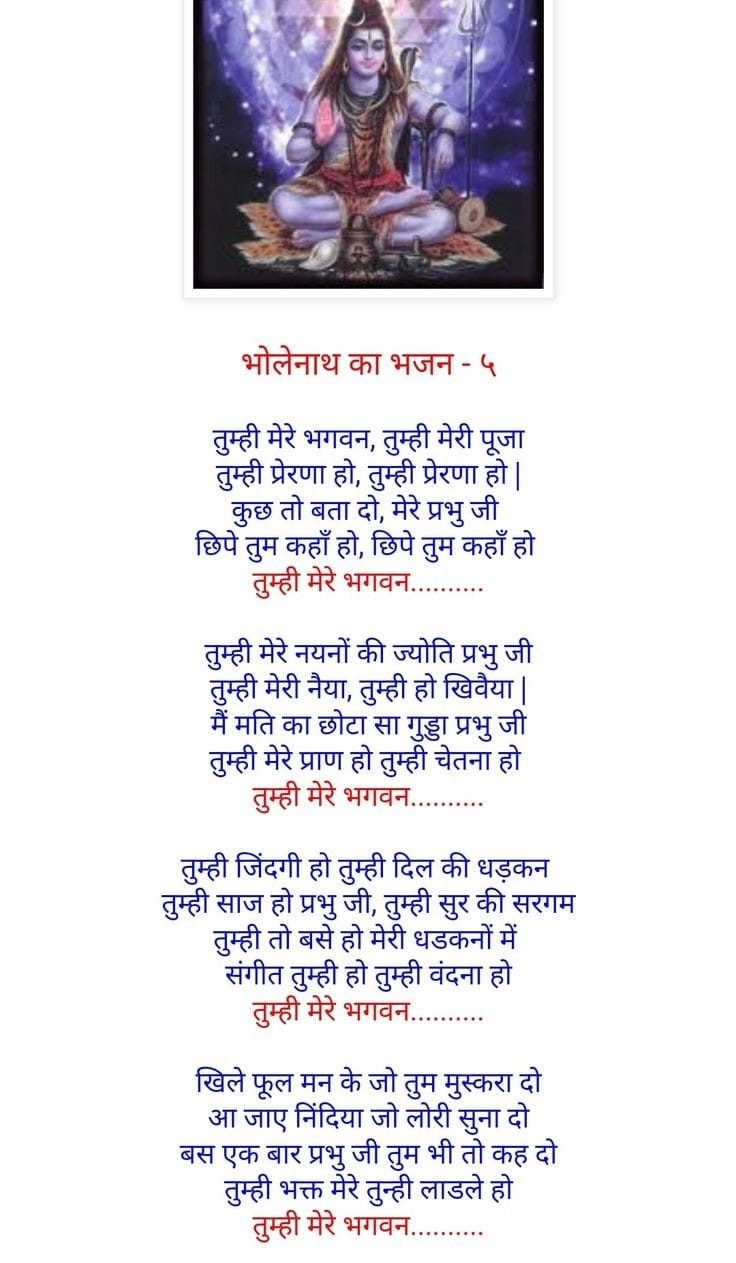 भोलेनाथ का भजन - ५
तुम्ही मेरे भगवन, तुम्ही मेरी पूजा
तुम्ही प्रेरणा हो, तुम्ही प्रेरणा हो |
कुछ तो बता दो, मेरे प्रभु जी
छिपे तुम कहाँ हो, छिपे तुम कहाँ हो
तुम्ही मेरे भगवन..........
तुम्ही मेरे नयनों की ज्योति प्रभु जी
तुम्ही मेरी नैया, तुम्ही हो खिवैया |
मैं मति का छोटा सा गुड्डा प्रभु जी
तुम्ही मेरे प्राण हो तुम्ही चेतना हो
तुम्ही मेरे भगवन..........
तुम्ही जिंदगी हो तुम्ही दिल की धड़कन
तुम्ही साज हो प्रभु जी, तुम्ही सुर की सरगम
तुम्ही तो बसे हो मेरी धडकनों में
संगीत तुम्ही हो तुम्ही वंदना हो
तुम्ही मेरे भगवन..........
खिले फूल मन के जो तुम मुस्करा दो
आ जाए निंदिया जो लोरी सुना दो
बस एक बार प्रभु जी तुम भी तो कह दो
तुम्ही भक्त मेरे तुन्ही लाडले हो
तुम्ही मेरे भगवन..........